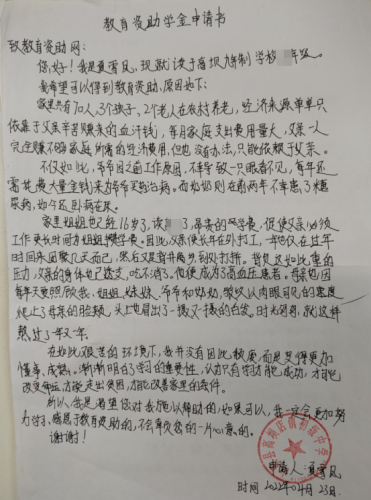 教育资助学金申请书
致教育资助网：
您,好！我是夏雪凤，现就读于高坝九年制学校 年级。
我希望可以得到教育资助,原因如下：
家里共有7口人,3个孩子、2个老人在农村养老，经济来源单单只
依靠于父亲辛苦赚来的血汗钱，每月家庭支出费用量大，父亲一人
完全赚不够家庭所需的经济费用,但也没有办法,只能依赖于父亲。
不仅如此，爷爷因之前工作原因，不幸导致一只眼看不见，每年还
需花费大量金钱来为爷爷买药治病。而奶奶则在前两年不幸患了糖
尿病，如今还卧病在床。
家里姐姐也已经16岁了,读 ，昂贵的 学费，促使父亲必须
工作更长时间为姐姐攒学费。因此,父亲便长年在外打工，一年也仅在过年
时回来团聚几天而已，然后又是背井离乡,到处打拼。哲是这如此重的
压力，父亲的身体也已透支，吃不消了,他便成为了高血压患者。母亲也因
每年天要照顾我、姐姐、妹妹、爷爷和奶奶，皱纹以肉眼可见的速度
爬上了母亲的脸颊，头上也冒出了一撮又一撮的白发。时光匆匆,就这样
熬过了一年又一年。
在如此艰苦的环境下，我并没有因此颓废,而是更得更加
懂事、成熟。渐渐明白了学习的重要性，认为只有学习才能成功，才能
改变命运,才能走出贫困,才能改善家里的条件。
所以,我是希望您对我施以帮助的,如果可以，我一定会更加努
力学习,感恩于教育资助的,不会辜负您的一片心意的。
谢谢！
申请人：夏雪凤
时间：2022年04月23日.
县高坝店镇初级中学